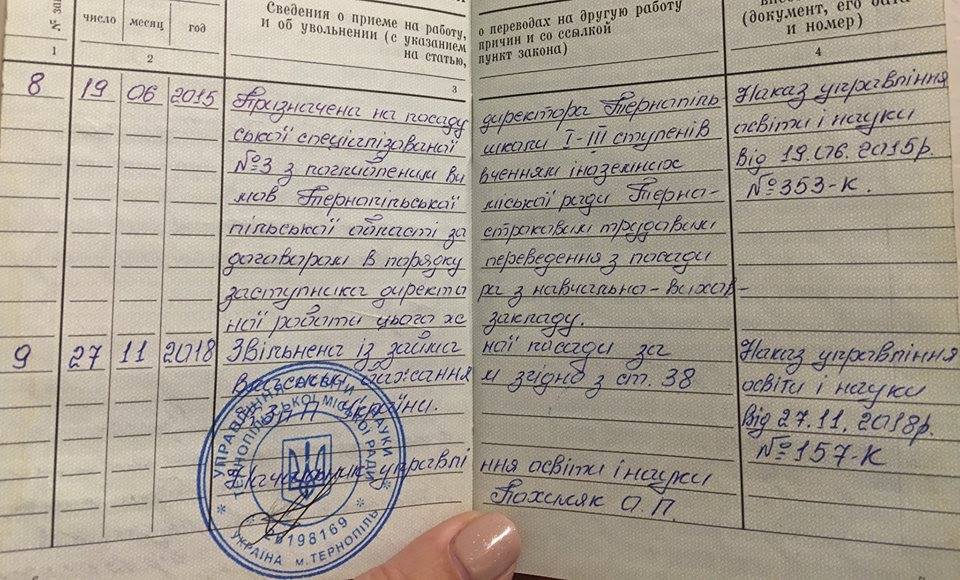 № за
число
месяц
год
Сведения о приеме на работу,
и об увольнении (с указанием
на статью,
о переводах на другую работу
причин и со ссылкой
пункт закона)
(документ, его дата
и номер)
1
2
3
4
8 19 06 2015 Призначена на посаду директора Тернопіль Наказ управління
ської спеціалізованої школи І-ІІІ ступенів освіти і науки
№3 з поглибленим ви вченням іноземних від 19.06.2015р.
мов Тернопільської міської ради Терно- №353-к.
пільської області за строковим трудовим
договором в порядку переведення з посади
заступника директо ра з навчально-вихов-
ної роботи цього ж закладу.
9 27 11 2018 Звільнена із займа ної посади за Наказ управління
власним бажання м згідно з ст. 38 освіти і науки
КЗпП України. від 27.11.2018р.
№157-к
управлі ння освіти і науки
Похиляк О.П.
УПРАВЛІННЯ ОСВІТИ І НАУКИ
ТЕРНОПІЛЬСЬКОЇ МІСЬКОЇ РАДИ
198169
УКРАЇНА м. ТЕРНОПІЛЬ